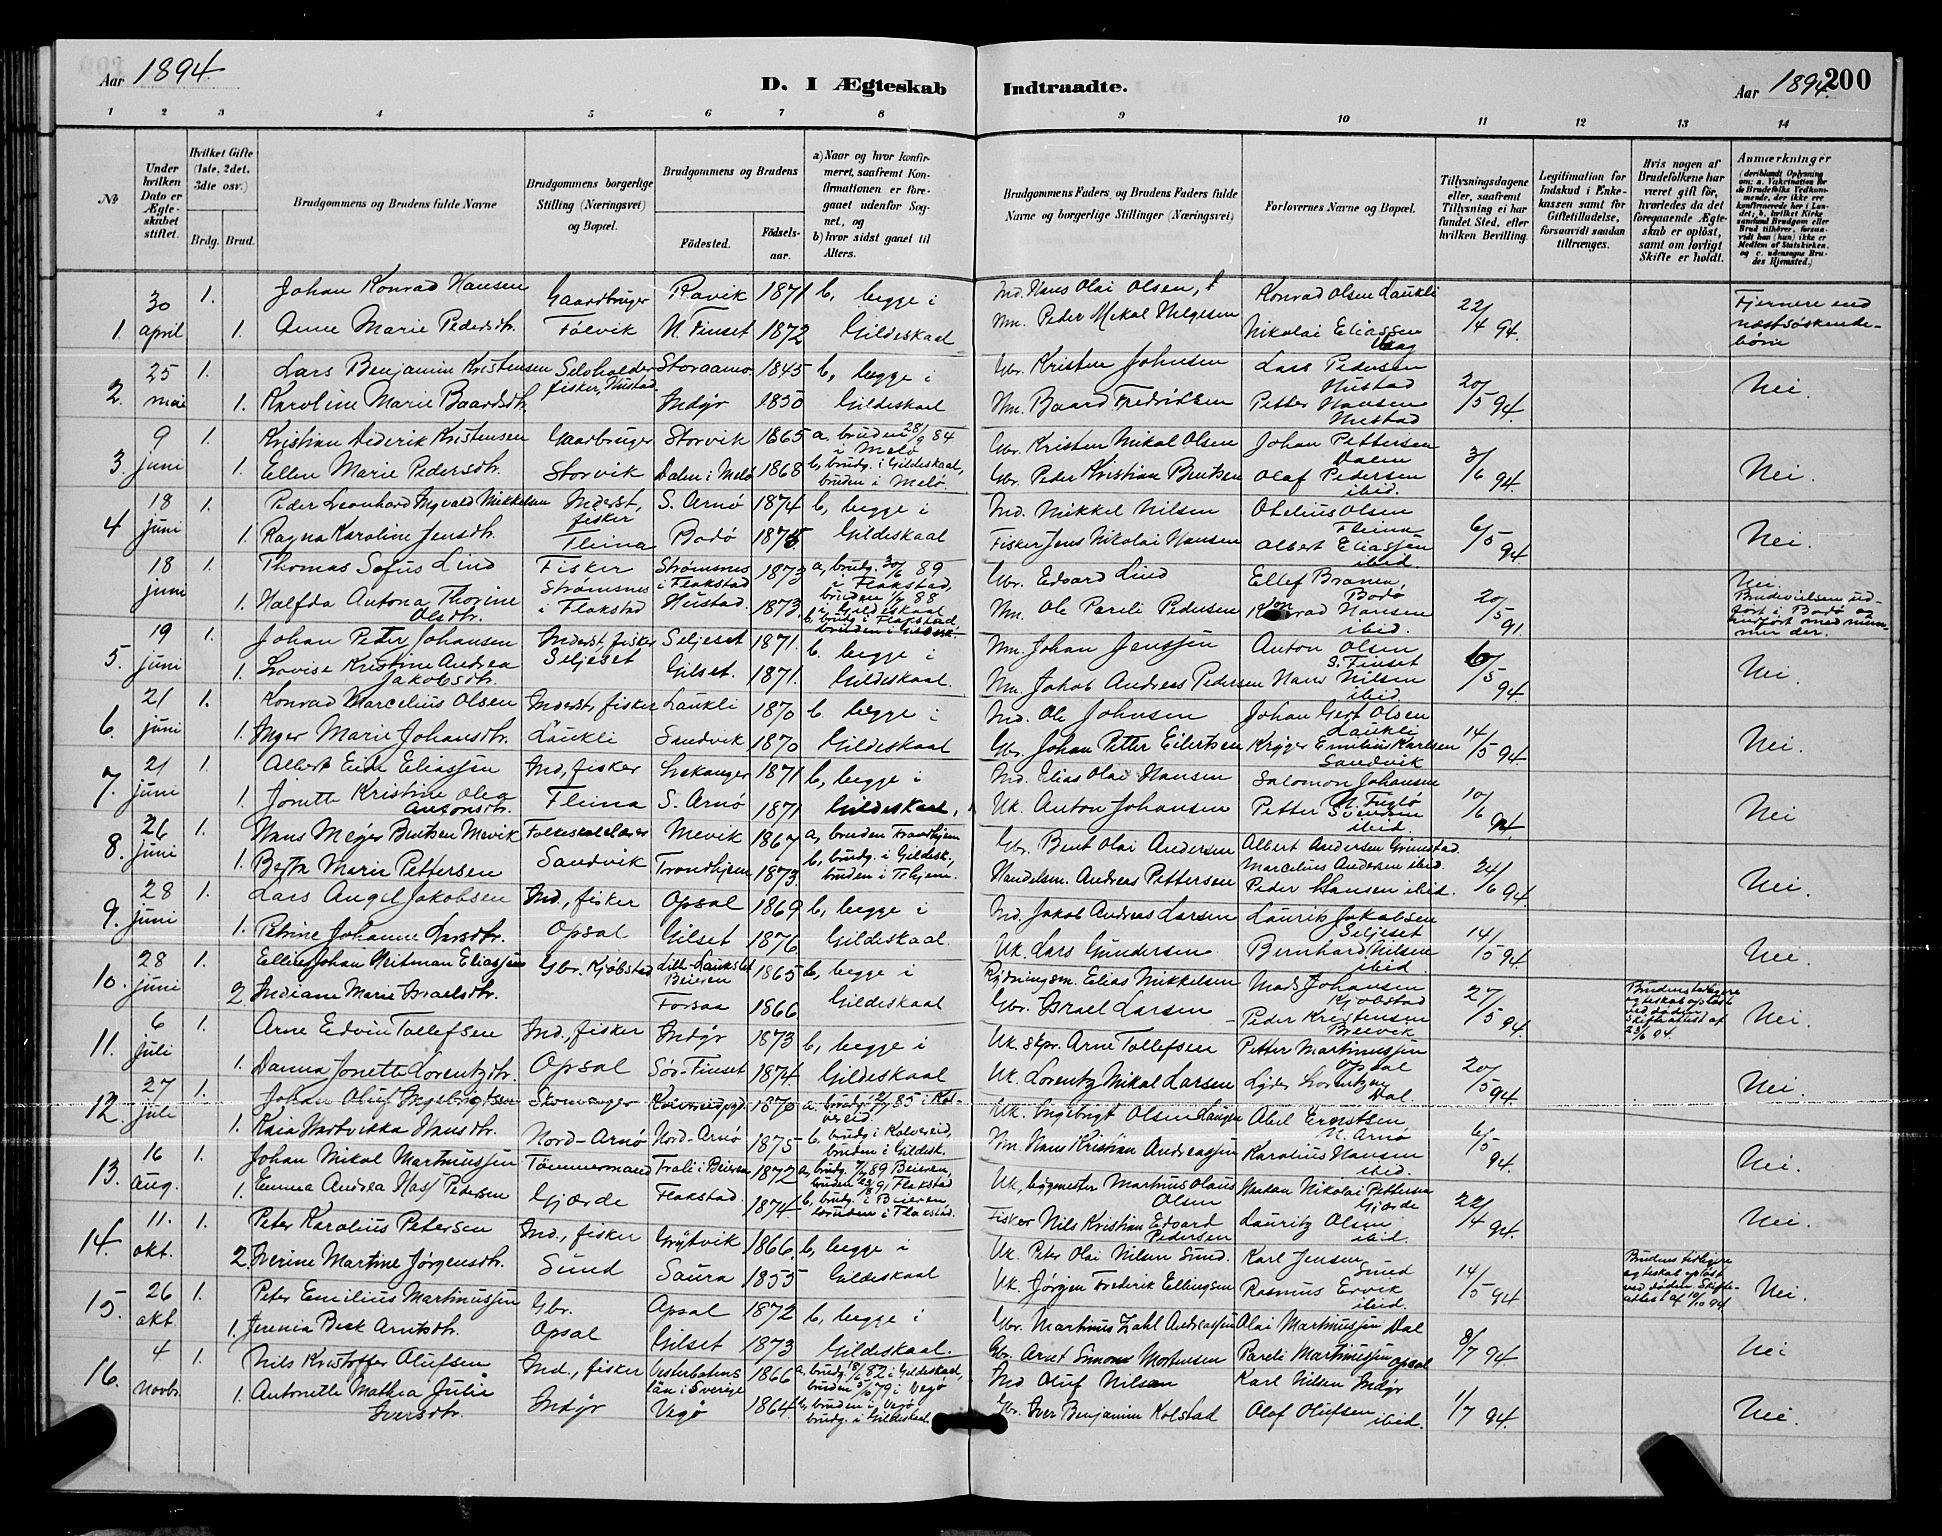 Aar 1894.
D. I Ægteskab Indtraadte.
Aar 1894. 200
1 2 3 4 5 6 7 8 9 10 11 12 13 14
№
Under hvilken Dato er Ægteskabet stiftet.
Hvilket Gifte (1ste, 2det, 3die osv.)
Brdg. Brud.
Brudgommens og Brudens fulde Navne
Brudgommens borgerlige Stilling (Næringsvei) og Bopæl.
Brudgommens og Brudens
Födested. Födselsaar.
a) Naar og hvor konfirmeret, saafremt Konfirmationen er foregaaet udenfor Sognet, og
b) hvor sidst gaaet til Alters.
Brudgommens Faders, og Brudens Faders fulde Navne og borgerlige Stillinger (Næringsvei)
Forlovernes Navne og Bopæl.
Tillysningsdagene eller, saafremt Tillysning ei har fundet Sted, efter hvilken Bevilling.
Legitimation for Indskud i Enkekassen samt for Giftetilladelse, forsaavidt saadan tiltrænges.
Hvis nogen af Brudefolkene har været gift för, hvorledes da det foregaaende Ægteskab er oplöst, samt om lovligt Skifte er holdt.
Anmærkninger
1. 30 april 1. Johan Konrad Hansen Gaardbruger Ravik 1871 b, begge i Ind. Hans Olai Olsen, Konrad Olsen Laukli 22/4 94. Fjernere end næstsöskendebörn
1. Anne Marie Pedersdtr. Fölvik N. Finset 1872 Gildeskaal Nm. Peder Mekal Helgesen Nikolai Eliassen
2. 25 mai 1. Lars Benjamin Kristensen Selvholder fisker, Hustad Storaamo 1845 b, begge i Gbr. Kristen Johnsen Lars Pedersen Hustad 20/5 94. Nei.
1. Karoline Marie Baardsdtr. Indyr 1850 Gildeskaal Nm. Baard Fredriksen Petter Hansen Hustad
3. 9 juni 1. Kristian Diderik Kristensen Gaardbruger Storvik 1865 a, bruden 28/9 84 i Melö Gbr. Kristen Mikal Olsen Johan Pettersen Dalen 3/6 94. Nei.
1. Ellen Marie Pedersdtr. Storvik Dalen i Melö 1868 b, brudg. i Gildeskaal, bruden i Melö. Gbr. Peder Kristian Bentsen Olaf Pedersen ibid.
4 18 juni 1. Peder Leonhard Ingvald Mikkelsen Inderst, fisker S. Arnö 1874 b, begge i Ind. Mikkel Nilsen Otelius Olsen Fleina 6/5 94 Nei.
1. Ragna Karoline Jensdtr. Fleina Bodö 1875. Gildeskaal Fisker Jens Nikolai Hansen Albert Eliassen ibid.
18 juni 1. Thomas Sofus Lind Fisker Strömsnes i Flakstad 1873 a, brudg. 30/6 89 i Flakstad, bruden 1/7 88 i Gildeskaal Gbr. Edvard Lind Ellef Bodö 20/5 91. Nei. Brudevielsen udfört i Bodö og indfört med nummer der.
1. Halfda Antona Thorine Olsdtr. Strömsnes i Flakstad Hustad. 1873. b, brudg i Flakstad, bruden i Gildesk. Nm. Ole Pareli Pedersen Konrad Hansen ibid.
5. 19 juni 1. Johan Peter Johansen Inderst, fisker Seljeset 1871. b. begge i Nm. Johan Jenssen Anton Olsen S. Finset 6/5 94. Nei.
1. Lovise Kristine Andrea Jakobsdtr. Seljeset Gilset. 1871. Gildeskaal. Nm. Jakob Andreas Pedersen Hans Nilsen ibid
6. 21 juni 1. Konrad Marcelius Olsen Inderst, fisker Laukli 1870 b. begge i Ind. Ole Johnsen Johan Gert Olsen Laukli 14/5 94. Nei.
1. Inger Marie Johansdtr. Laukli Sandvik 1870 Gildeskaal Gbr. Johan Petter Eilertsen Kröger Emilius Karlsen Sandvik
7. 21 juni 1. Albert Eide Eliassen Ind, fisker 1871 b, begge i Ind. Elias Olai Hansen Salomon Johansen N. Fuglö 10/6 94. Nei
1. Jonette Kristine Olea Antonsdtr. Fleina S. Arnö 1871 Gildeskaal, Uk. Anton Johansen Petter Svendsen ibid.
8. 26 juni 1. Hans Meyer Bentsen Mevik Folkeskolelærer Mevik 1867 a, bruden Trondhjem Gbr. Bent Olai Andersen Albert Andersen Grimstad. Marcelius Andersen ibid. 24/6 94. Nei.
1. Marie Pettersen Sandvik Trondhjem 1873. b, brudg. i Gildesk., bruden i Thjem. Handelsm. Andreas Pettersen Peder Hansen ibid.
9. 28 juni 1. Lars Angel Jakobsen Ind., fisker Opsal 1869 b, begge i Ind. Jakob Andreas Larsen Laurits Jakobsen Seljeset 14/5 94. Nei.
1. Petrine Johanne Larsdtr. Opsal Gilset 1876 Gildeskaal Uk. Lars Gundersen Bernhard Nilsen ibid
10. 28 juni 1. Johan Hitman Eliassen Gbr. Kjöbstad Beieren 1865 b, begge i Rydningsm. Elias Mikkelsen Mads Johansen Kjöbstad 27/5 94. Brudens tidligere ægteskab oplöst ved döden Skifteattest af 23/6 94. Nei.
2 Indiane Marie Israelsdtr. Forsaa 1866 Gildeskaal Gbr. Israel Larsen Peder Kristensen Breivik
11. 6 juli 1. Arne Edvin Tollefsen Ind., fisker Indyr 1873 b, begge i Uk. Arne Tollefsen Petter Martinussen Opsal 20/5 94. Nei.
1. Danna Jonette Lorentzdtr. Opsal Sör-Finset 1874 Gildeskaal Uk. Lorentz Mikal Larsen Lorentzen Dal.
12. 27 juli 1. Johan Oluf Ingebrigtsen Skomager 1870 a, brudg. 85 i Kolvereid. Uk. Ingebrigt Olsen Abel Ernstsen, N. Arnö 6/5 94. Nei.
1. Kaia Hartvikka Hansdtr. Nord-Arnö Nord-Arnö 1875 b. brudg i Kolvereid, bruden i Gildesk. Nm. Hans Kristian Andreassen Karolius Hansen ibid.
13. 16 aug. 1. Johan Nikol Martinussen Tömmermand i Beieren 1872 a, brudg. 89 Beieren, bruden 91 Flakstad Uk, bygmester Martinus Olaus Olsen Nikolai Pettersen Gjorde 22/4 94. Nei.
1. Emma Andrea Pedersen Gjorde Flakstad. 1874 b, brudg. i Beieren, bruden i Flakstad. Fisker Nils Kristian Edvard Pedersen Lauritz Olsen ibid.
14. 11. okt. 1. Peter Karolius Petersen Ind., fisker Grytvik 1866. b, begge i Uk. Peter Olai Nilsen Sund. Karl Jensen Sund 14/5 94 Brudens tidligere ægteskab oplöst ved döden, Skifteattest af 10/10 94 Nei.
2. Iverine Martine Jörgensdtr. Sund Saura 1855 Gildeskaal Uk. Jörgen Frederik Ellingsen Rasmus Ervik ibid.
15. 26 okt 1. Peter Emilius Martinussen Gbr. Opsal 1872 b, begge i Gbr. Martinus Zahl Andreassen Olai Martinussen Dal 8/7 94 Nei
1. Jerenia Beck Arntsdtr. Opsal Gilset 1873 Gildeskaal. Gbr. Arnt Simon Mortensen Pareli Martinussen Opsal
16. 4 novbr. 1. Nils Kristoffer Olufsen Ind., fisker Vesterbottens län i Sverige 1866 a, brudg. 18/6 82 i Gildeskaal, bruden 79 i Vegö Ind Oluf Nilsen Karl Nilsen Indyr 1/7 94. Nei.
1. Antonette Mathea Julie Iversdtr. Indyr Vegö 1864 b, bruden i Vegö brudg. i Gildeskaal. Gbr. Iver Benjamin Kolstad Olaf Olufsen ibid.